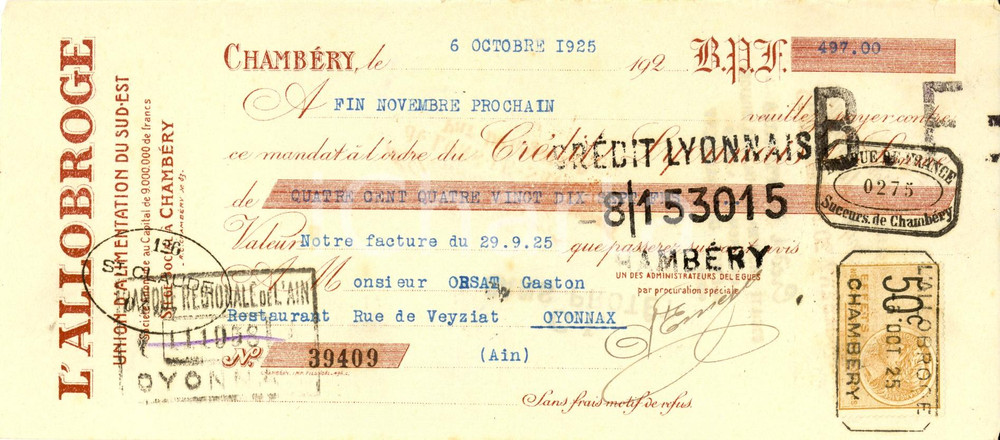 L'ALLOBROGE
UNION D'ALIMENTATION DU SUD-EST
Société Anonyme au Capital de 9.000.000 de francs
SIÈGE SOCIAL A CHAMBÉRY
CHAMBÉRY, le 6 OCTOBRE 1925 192
B.P.F. 497.00
A FIN NOVEMBRE PROCHAIN veuillez payer contre
ce mandat à l'ordre du Crédit Lyonnais
de CUATRE CENT QUATRE VINGT DIX
Valeur Notre facture du 29.9.25 que passerez suivant avis
A M onsieur ORSAT Gaston
Restaurant Rue de Veyziat OYONNAX
(Ain)
No 39409
Sans frais motif de refus.
UN DES ADMINISTRATEURS DÉLÉGUÉS
par procuration spéciale
CRÉDIT LYONNAIS
8/153015
CHAMBÉRY
B F
BANQUE DE FRANCE
0275
Succurs. de Chambéry
126
S. CLAUDE
BANQUE REGIONALE DE L'AIN
OYONNAX
L'ALLOBROGE
50c
6 OCT 25
CHAMBÉRY